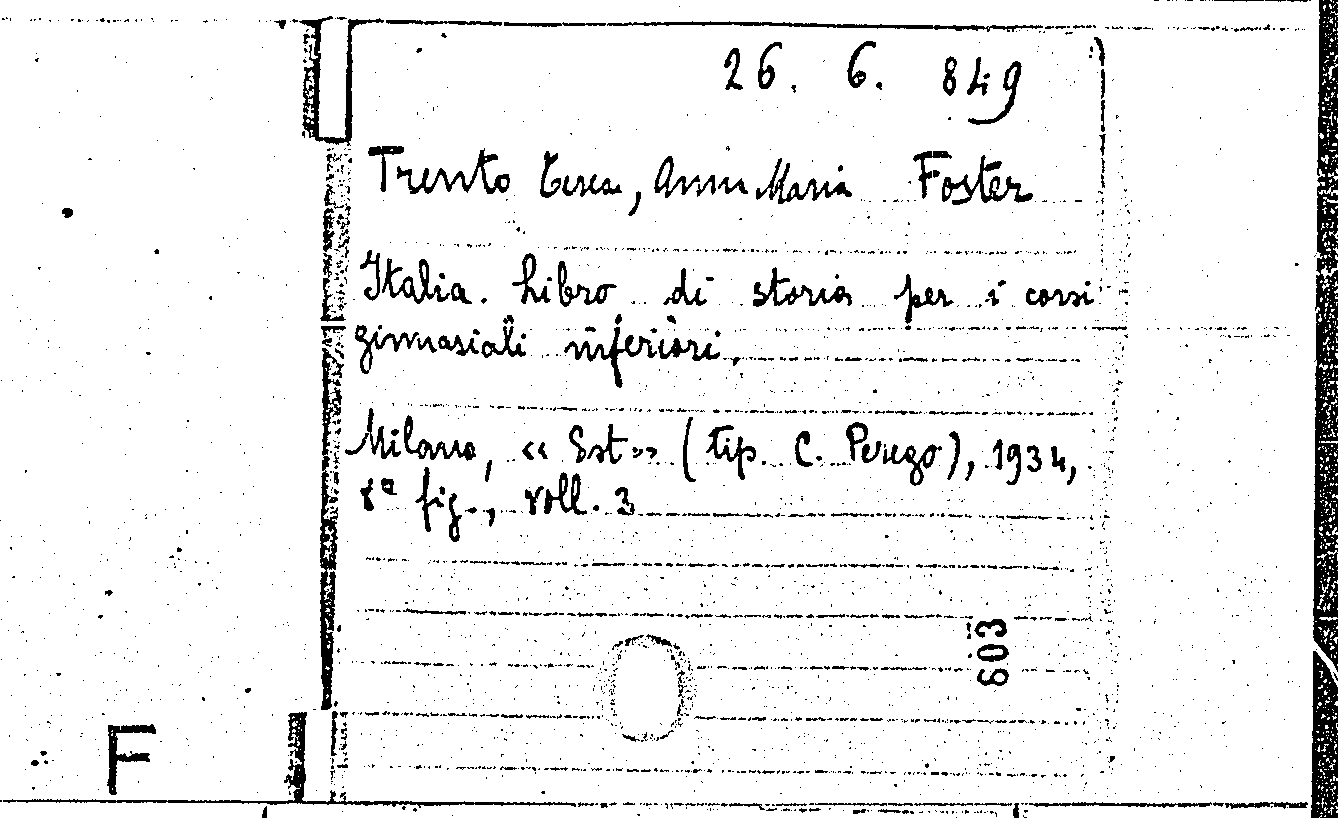 26. 6. 849
Trento Teresa, Anna Maria Foster
Italia. Libro di storia per i corsi
ginnasiali inferiori.
Milano, « Est » (tip. C. Perego), 1934,
8° fig., voll. 3
603
F